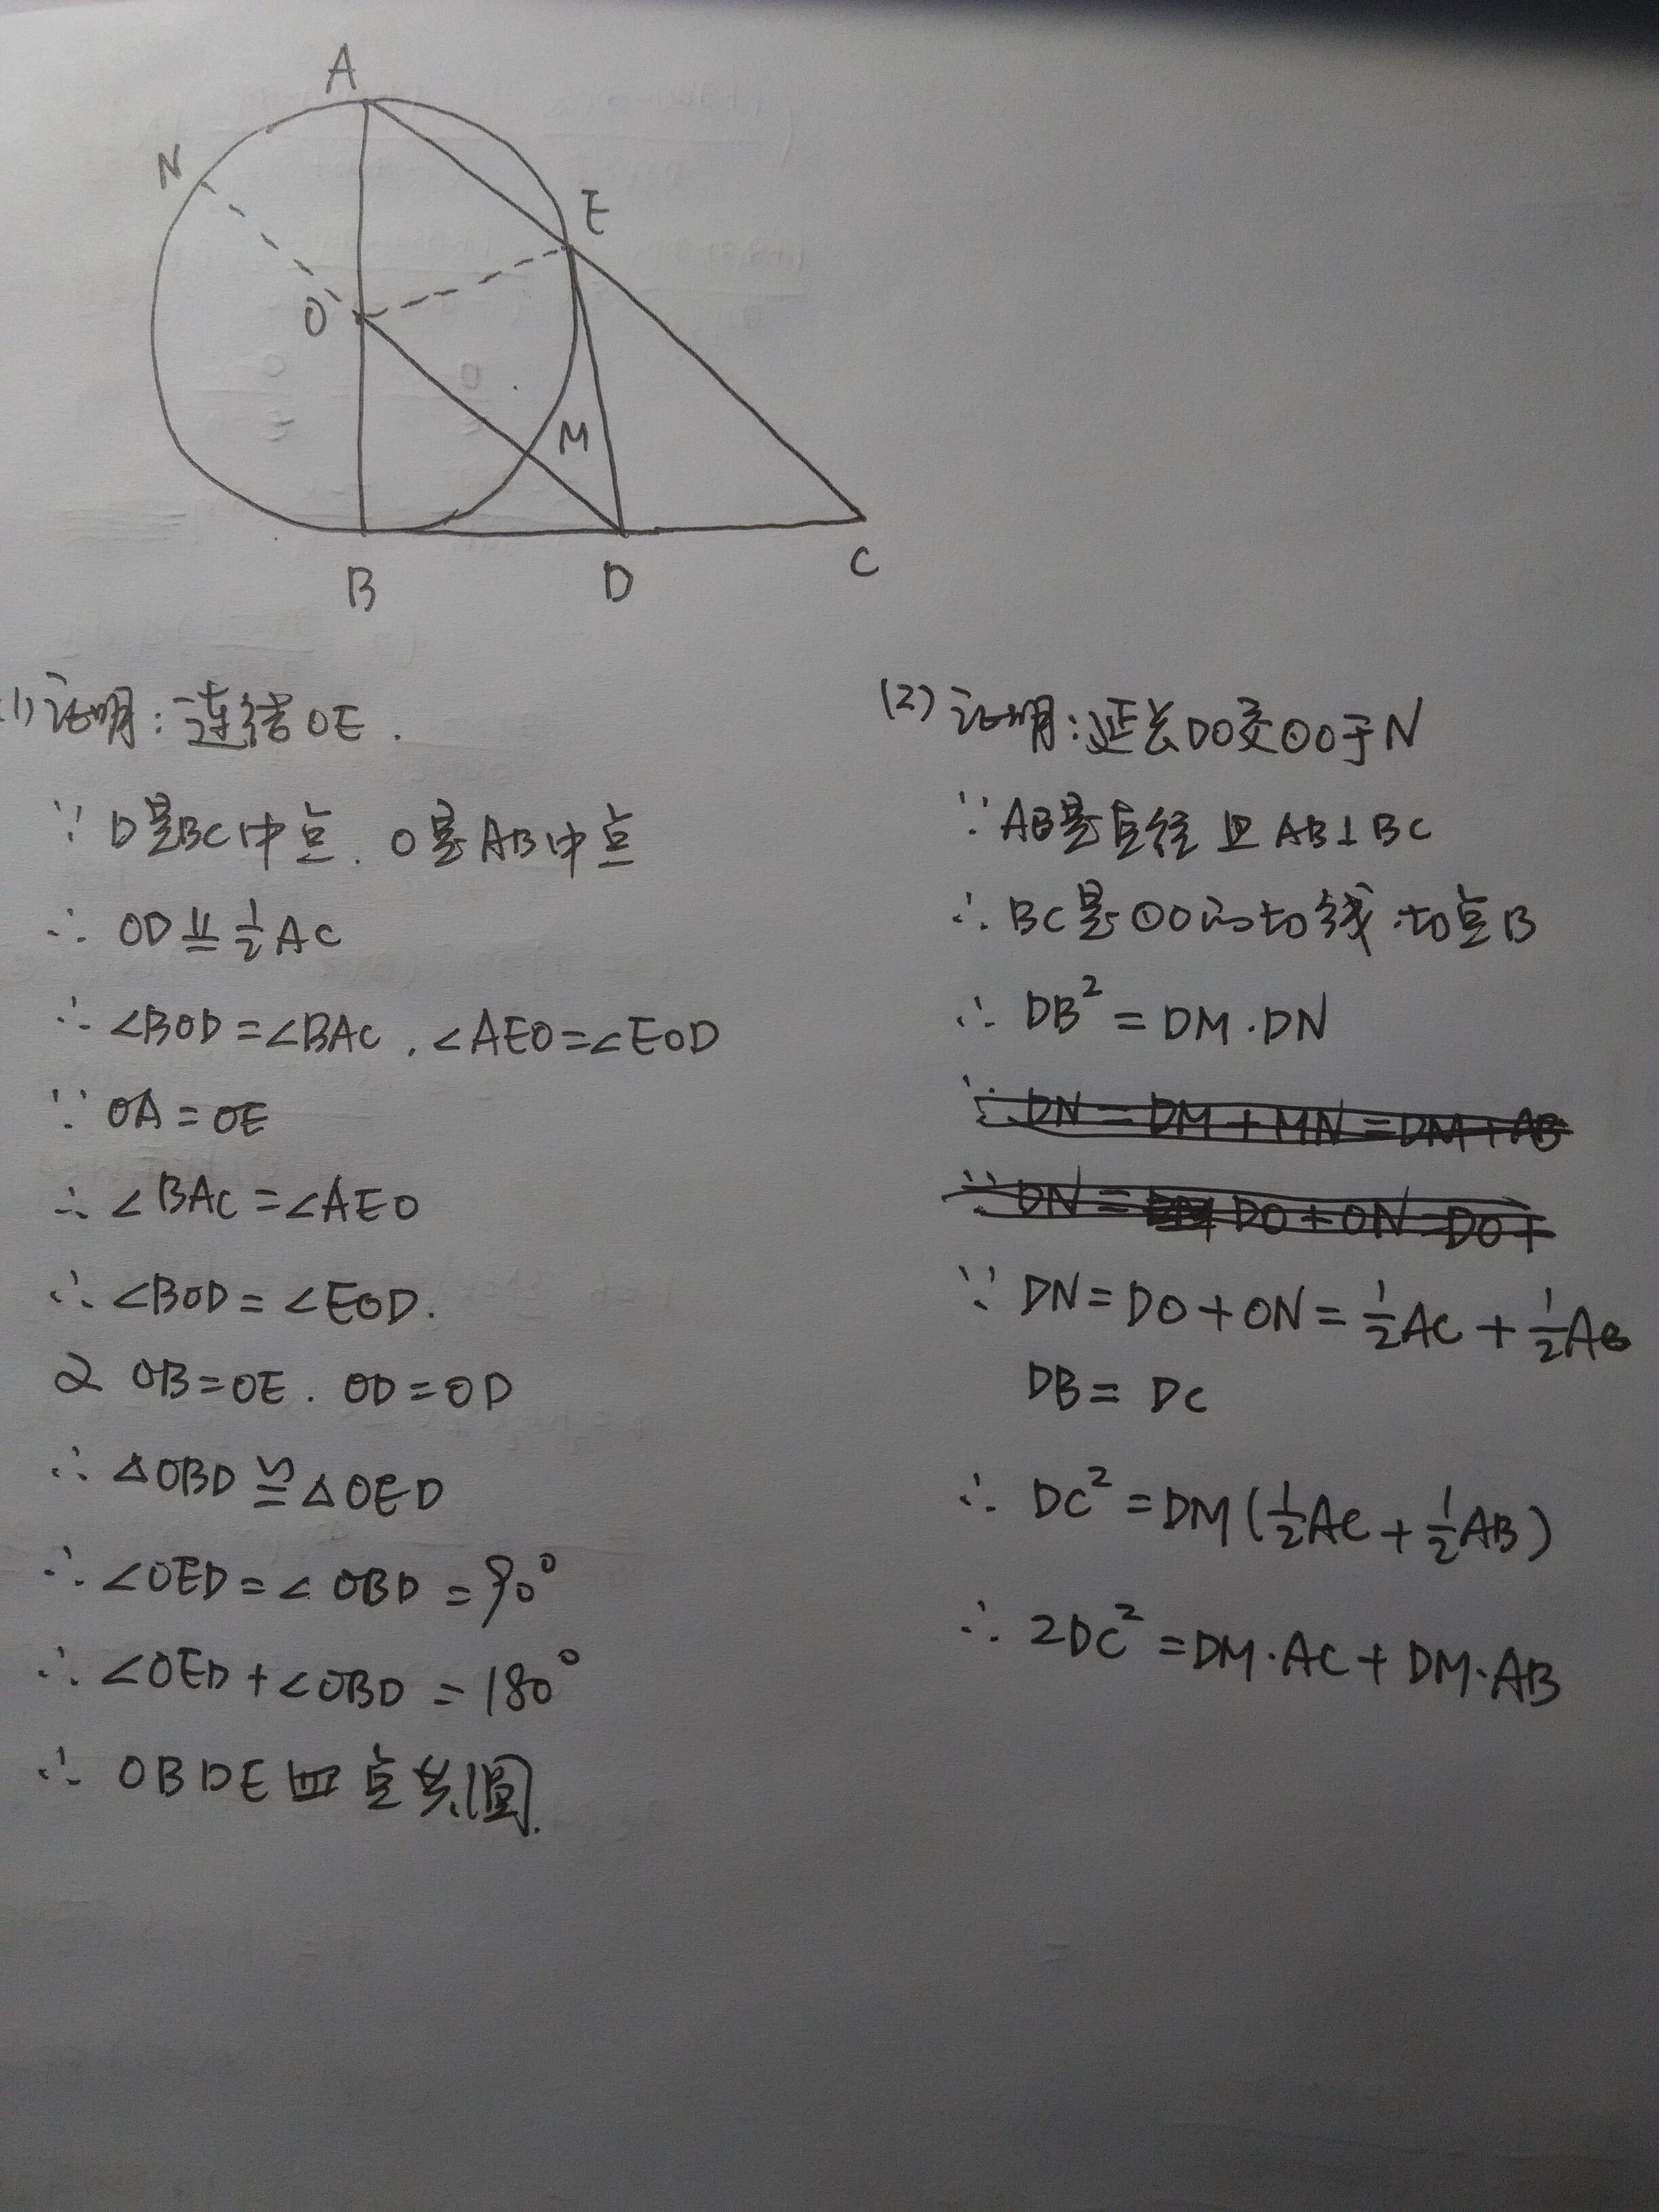 A
N
E
O
M
B
D
C
(1) 证明：连结OE.
∵ D是BC中点. O是AB中点
∴ OD ∥= 1/2 AC
∴ ∠BOD=∠BAC , ∠AEO=∠EOD
∵ OA=OE
∴ ∠BAC=∠AEO
∴ ∠BOD=∠EOD.
又 OB=OE. OD=OD
∴ △OBD≌△OED
∴ ∠OED=∠OBD=90°
∴ ∠OED+∠OBD=180°
∴ OBDE四点共圆.
(2) 证明：延长DO交⊙O于N
∵ AB是直径且AB⊥BC
∴ BC是⊙O的切线.切点B
∴ DB²=DM·DN
∵ DN=DM+MN=DM+AB
∵ DN= DO+ON=DO+
∵ DN=DO+ON=1/2AC+1/2AB
DB=DC
∴ DC²=DM(1/2AC+1/2AB)
∴ 2DC²=DM·AC+DM·AB